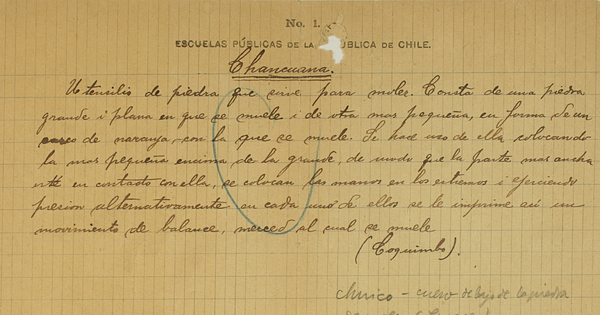 No. 1.
ESCUELAS PÚBLICAS DE LA PÚBLICA DE CHILE.
Chancuana.
Utensilio de piedra que sirve para moler. Consta de una piedra
grande i plana en que se muele i de otra mas pequeña, en forma de un
casco de naranja, con la que se muele. Se hace uso de ella colocando
la mas pequeña encima de la grande, de modo que la parte mas ancha
esté en contacto con ella, se colocan las manos en los estremos i ejerciendo
presion alternativamente en cada uno de ellos se le imprime así un
movimiento de balance, merced al cual se muele
(Coquimbo).
chuico - cuero debajo de la piedra